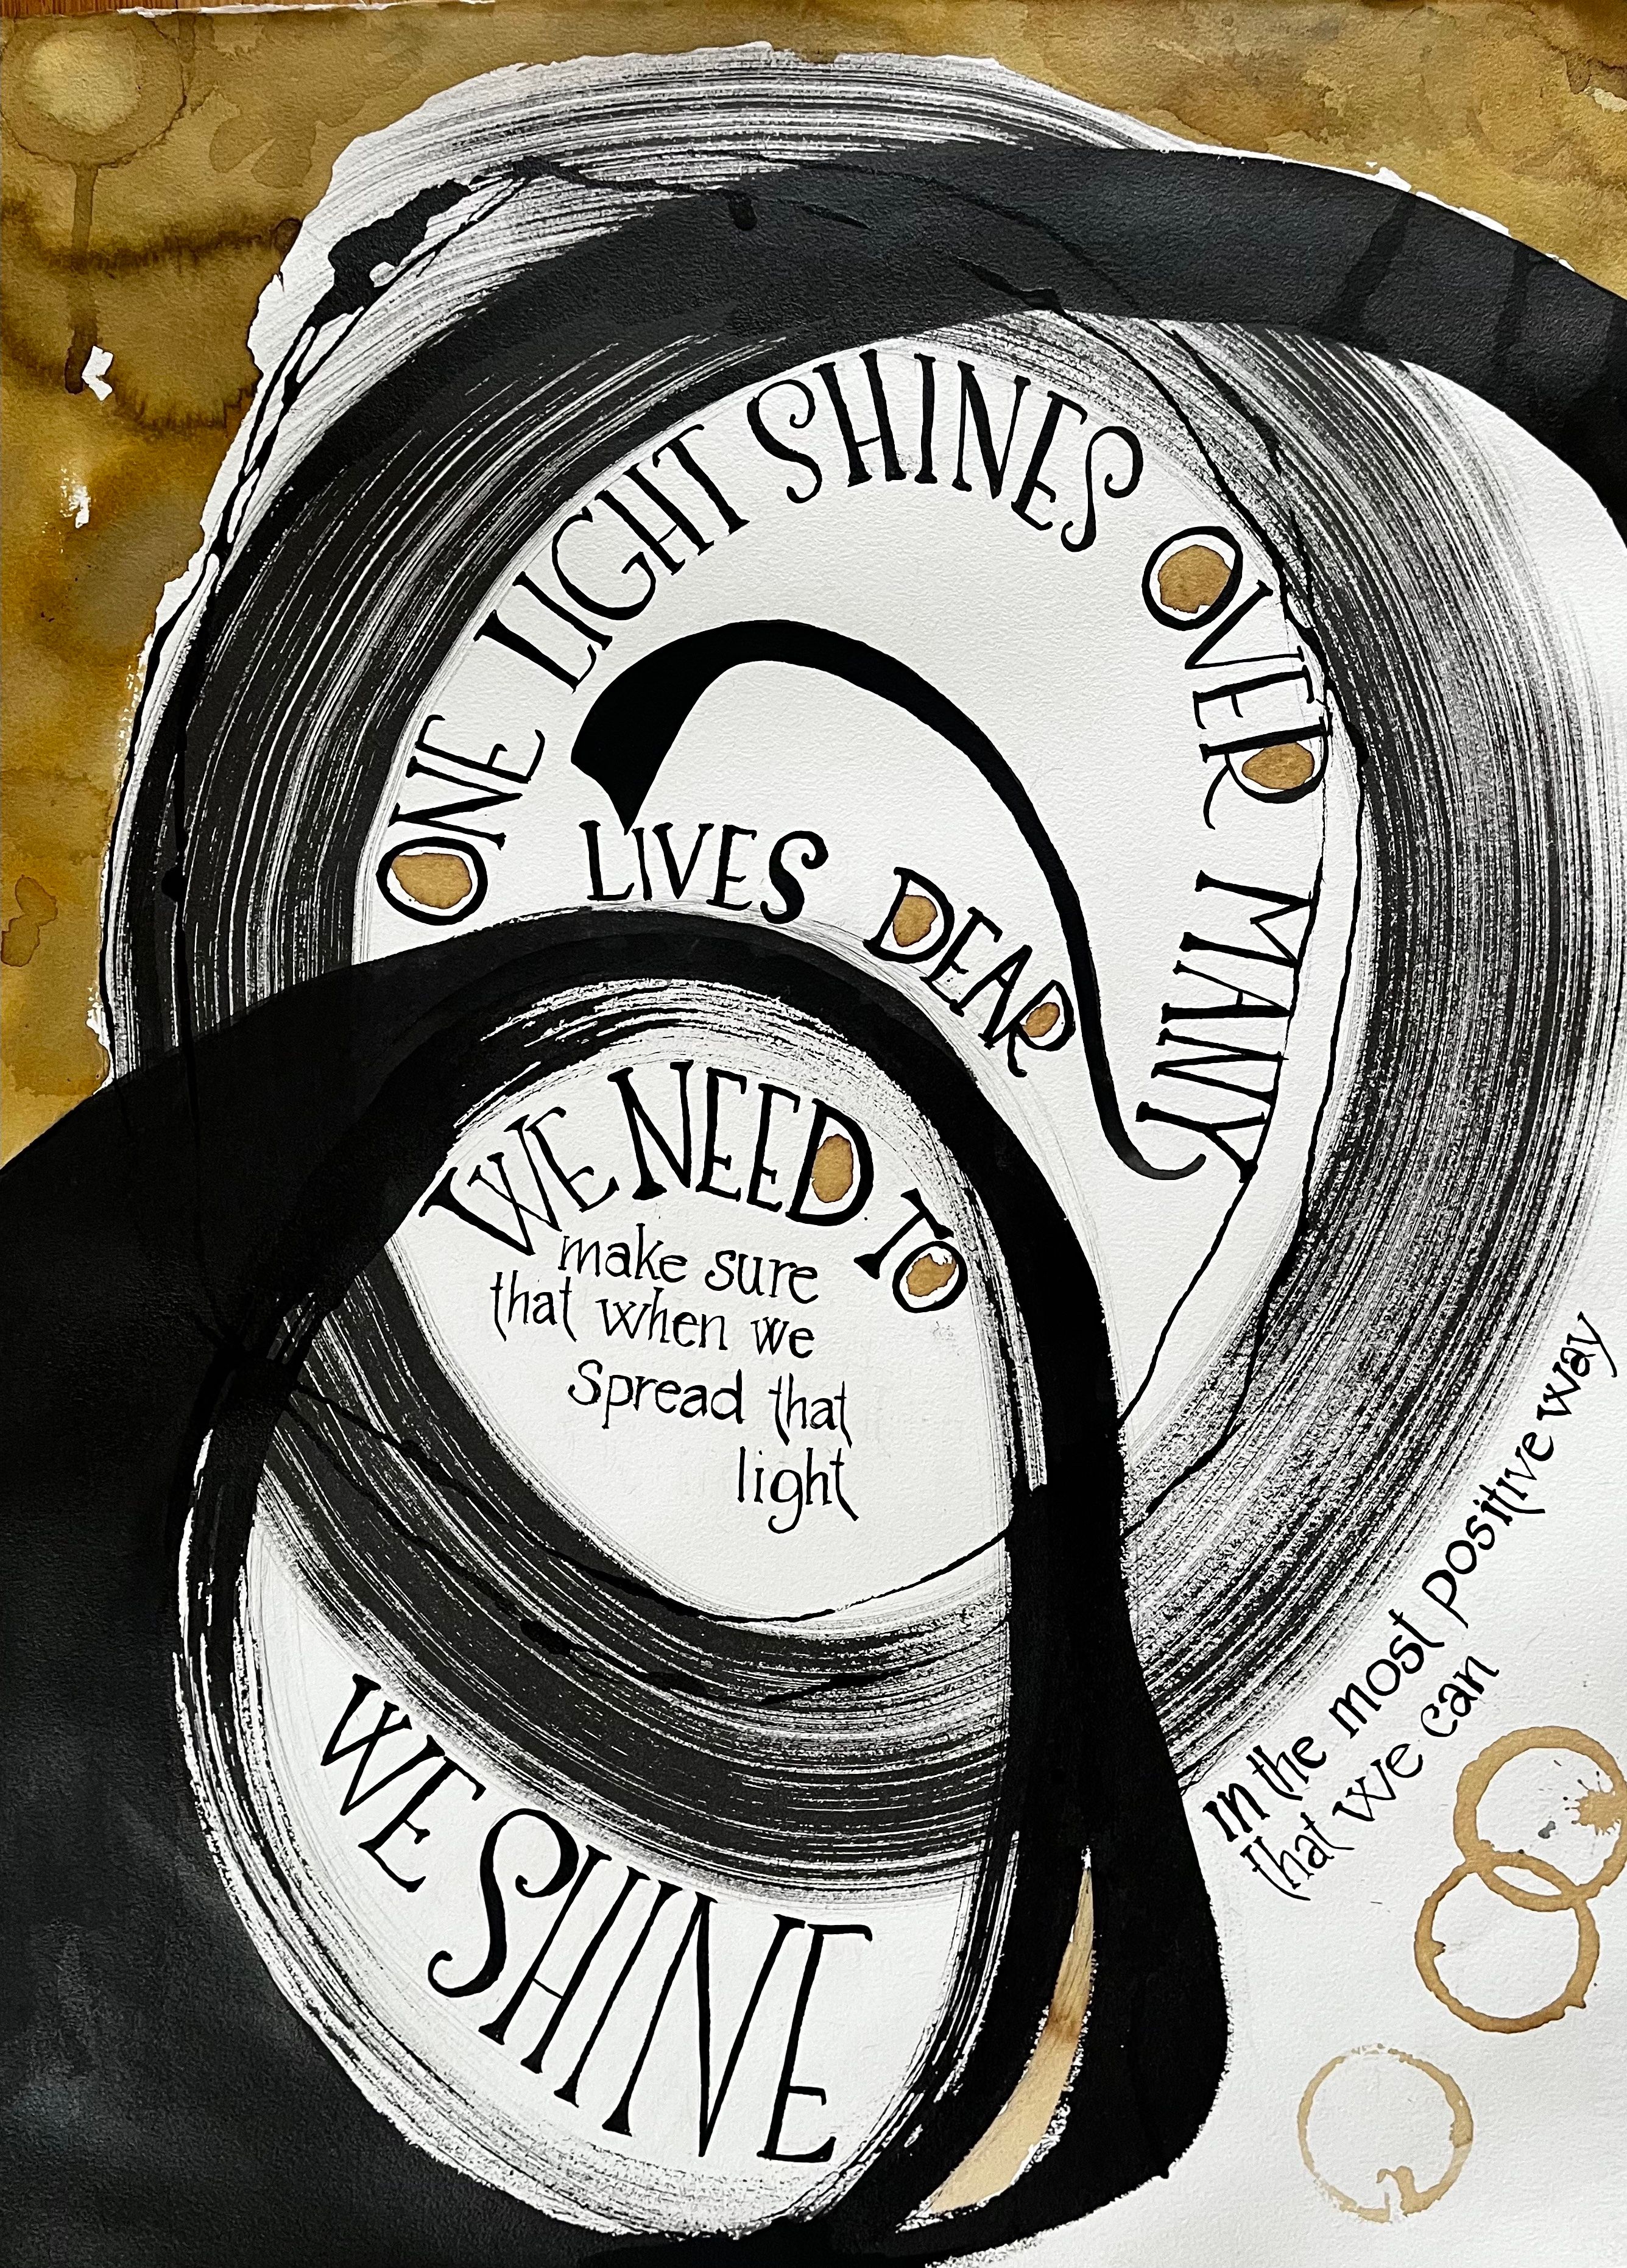 ONE LIGHT SHINES OVER MANY
LIVES DEAR
WE NEED TO
make sure
that when we
spread that
light
WE SHINE
in the most positive way
that we can